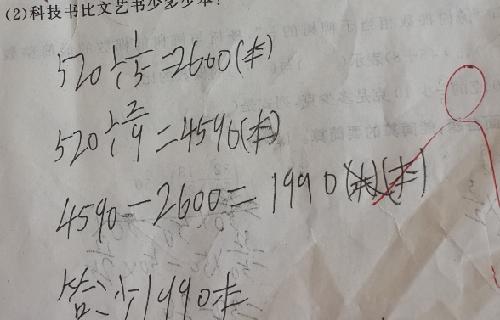 (2)科技书比文艺书少多少本?
520÷1/5=2600(本)
520÷2/9=4590(本)
4590-2600=1990(本)
答:少1990本